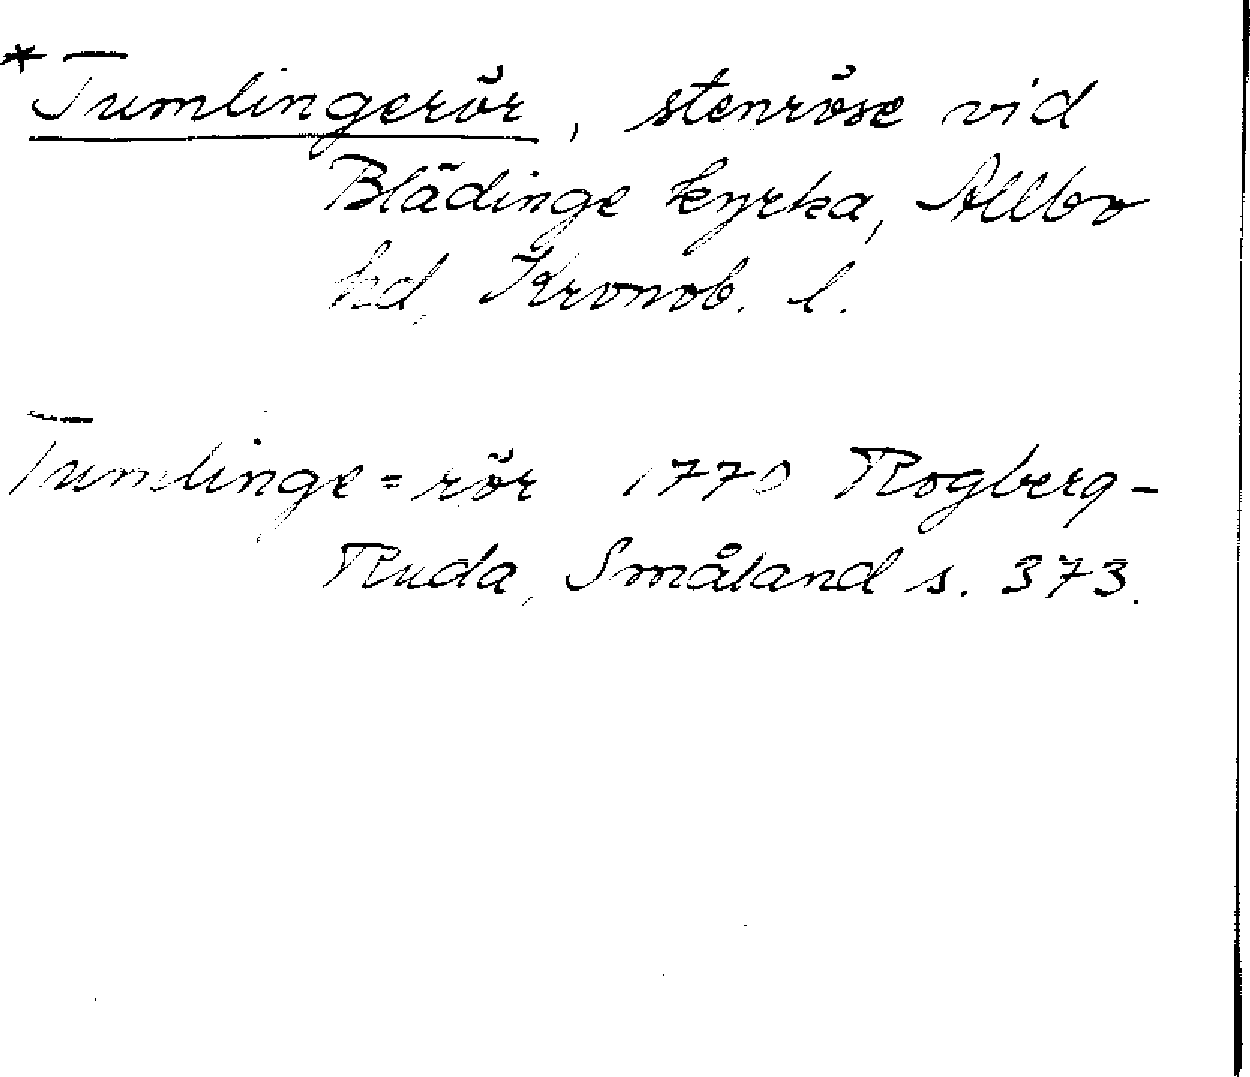 *Tumlingerör, stenröse vid
Blädinge kyrka, Allbo
hd, Kronob. l.
Tumlinge=rör 1770 Rogberg-
Ruda, Småland s. 373.